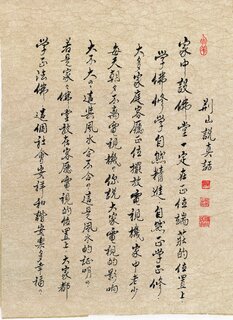 荆山說真話
家中設佛堂一定在正位端莊的位置上
學佛修學自然精進自然正學正修
大多家庭客廳正位擺放電視機家中老少
每天朝夕不离電視機 你說大家電視的影响
大不大 這與風水合不合 這是風水的証明
若是家々佛堂設在客廳電視的位置上 大家都
學正法佛 這個社會安祥和諧安樂多幸福